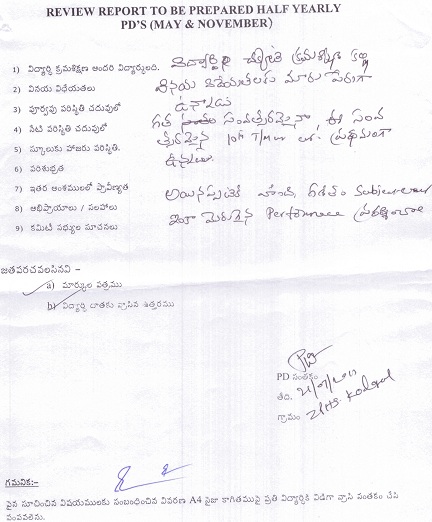 REVIEW REPORT TO BE PREPARED HALF YEARLY
PD'S (MAY & NOVEMBER)
1) విద్యార్థి క్రమశిక్షణ అందరి విద్యార్థులది.
2) వినయ విధేయతలు
3) పూర్వపు పరిస్థితి చదువులో
4) నేటి పరిస్థితి చదువులో
5) స్కూలుకు హాజరు పరిస్థితి.
6) పరిశుభ్రత
7) ఇతర అంశములలో ప్రావీణ్యత
8) అభిప్రాయాలు / సలహాలు
9) కమిటీ సభ్యుల సూచనలు
క్రమశిక్షణ
వినయ విధేయతలకు మారు పేరుగా
ఉన్నాడు
గత సంవత్సరమైనా, ఈ సంవ
10th లో ప్రథమంగా
ఉన్నాడు.
గణితం Subject
ఇంకా మెరుగైన Performance
జతపరచవలసినవి –
a) మార్కుల పత్రము
b) విద్యార్థి దాతకు వ్రాసిన ఉత్తరము
PD సంతకం
తేది.
గ్రామం
గమనిక:-
పైన సూచించిన విషయములకు సంబంధించిన వివరణ A4 సైజు కాగితముపై ప్రతి విద్యార్థికి విడిగా వ్రాసి సంతకం చేసి
పంపవలెను.